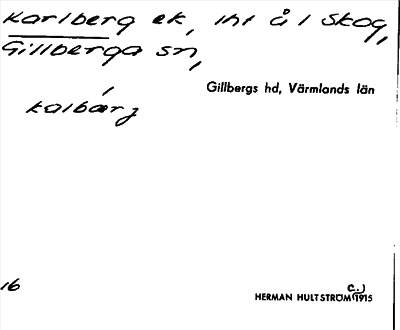 Karlberg ek, iht å 1 Skog,
Gillberga sn,
Gillbergs hd, Värmlands län
kalbærj
16
HERMAN HULTSTRÖM (c.) 1915